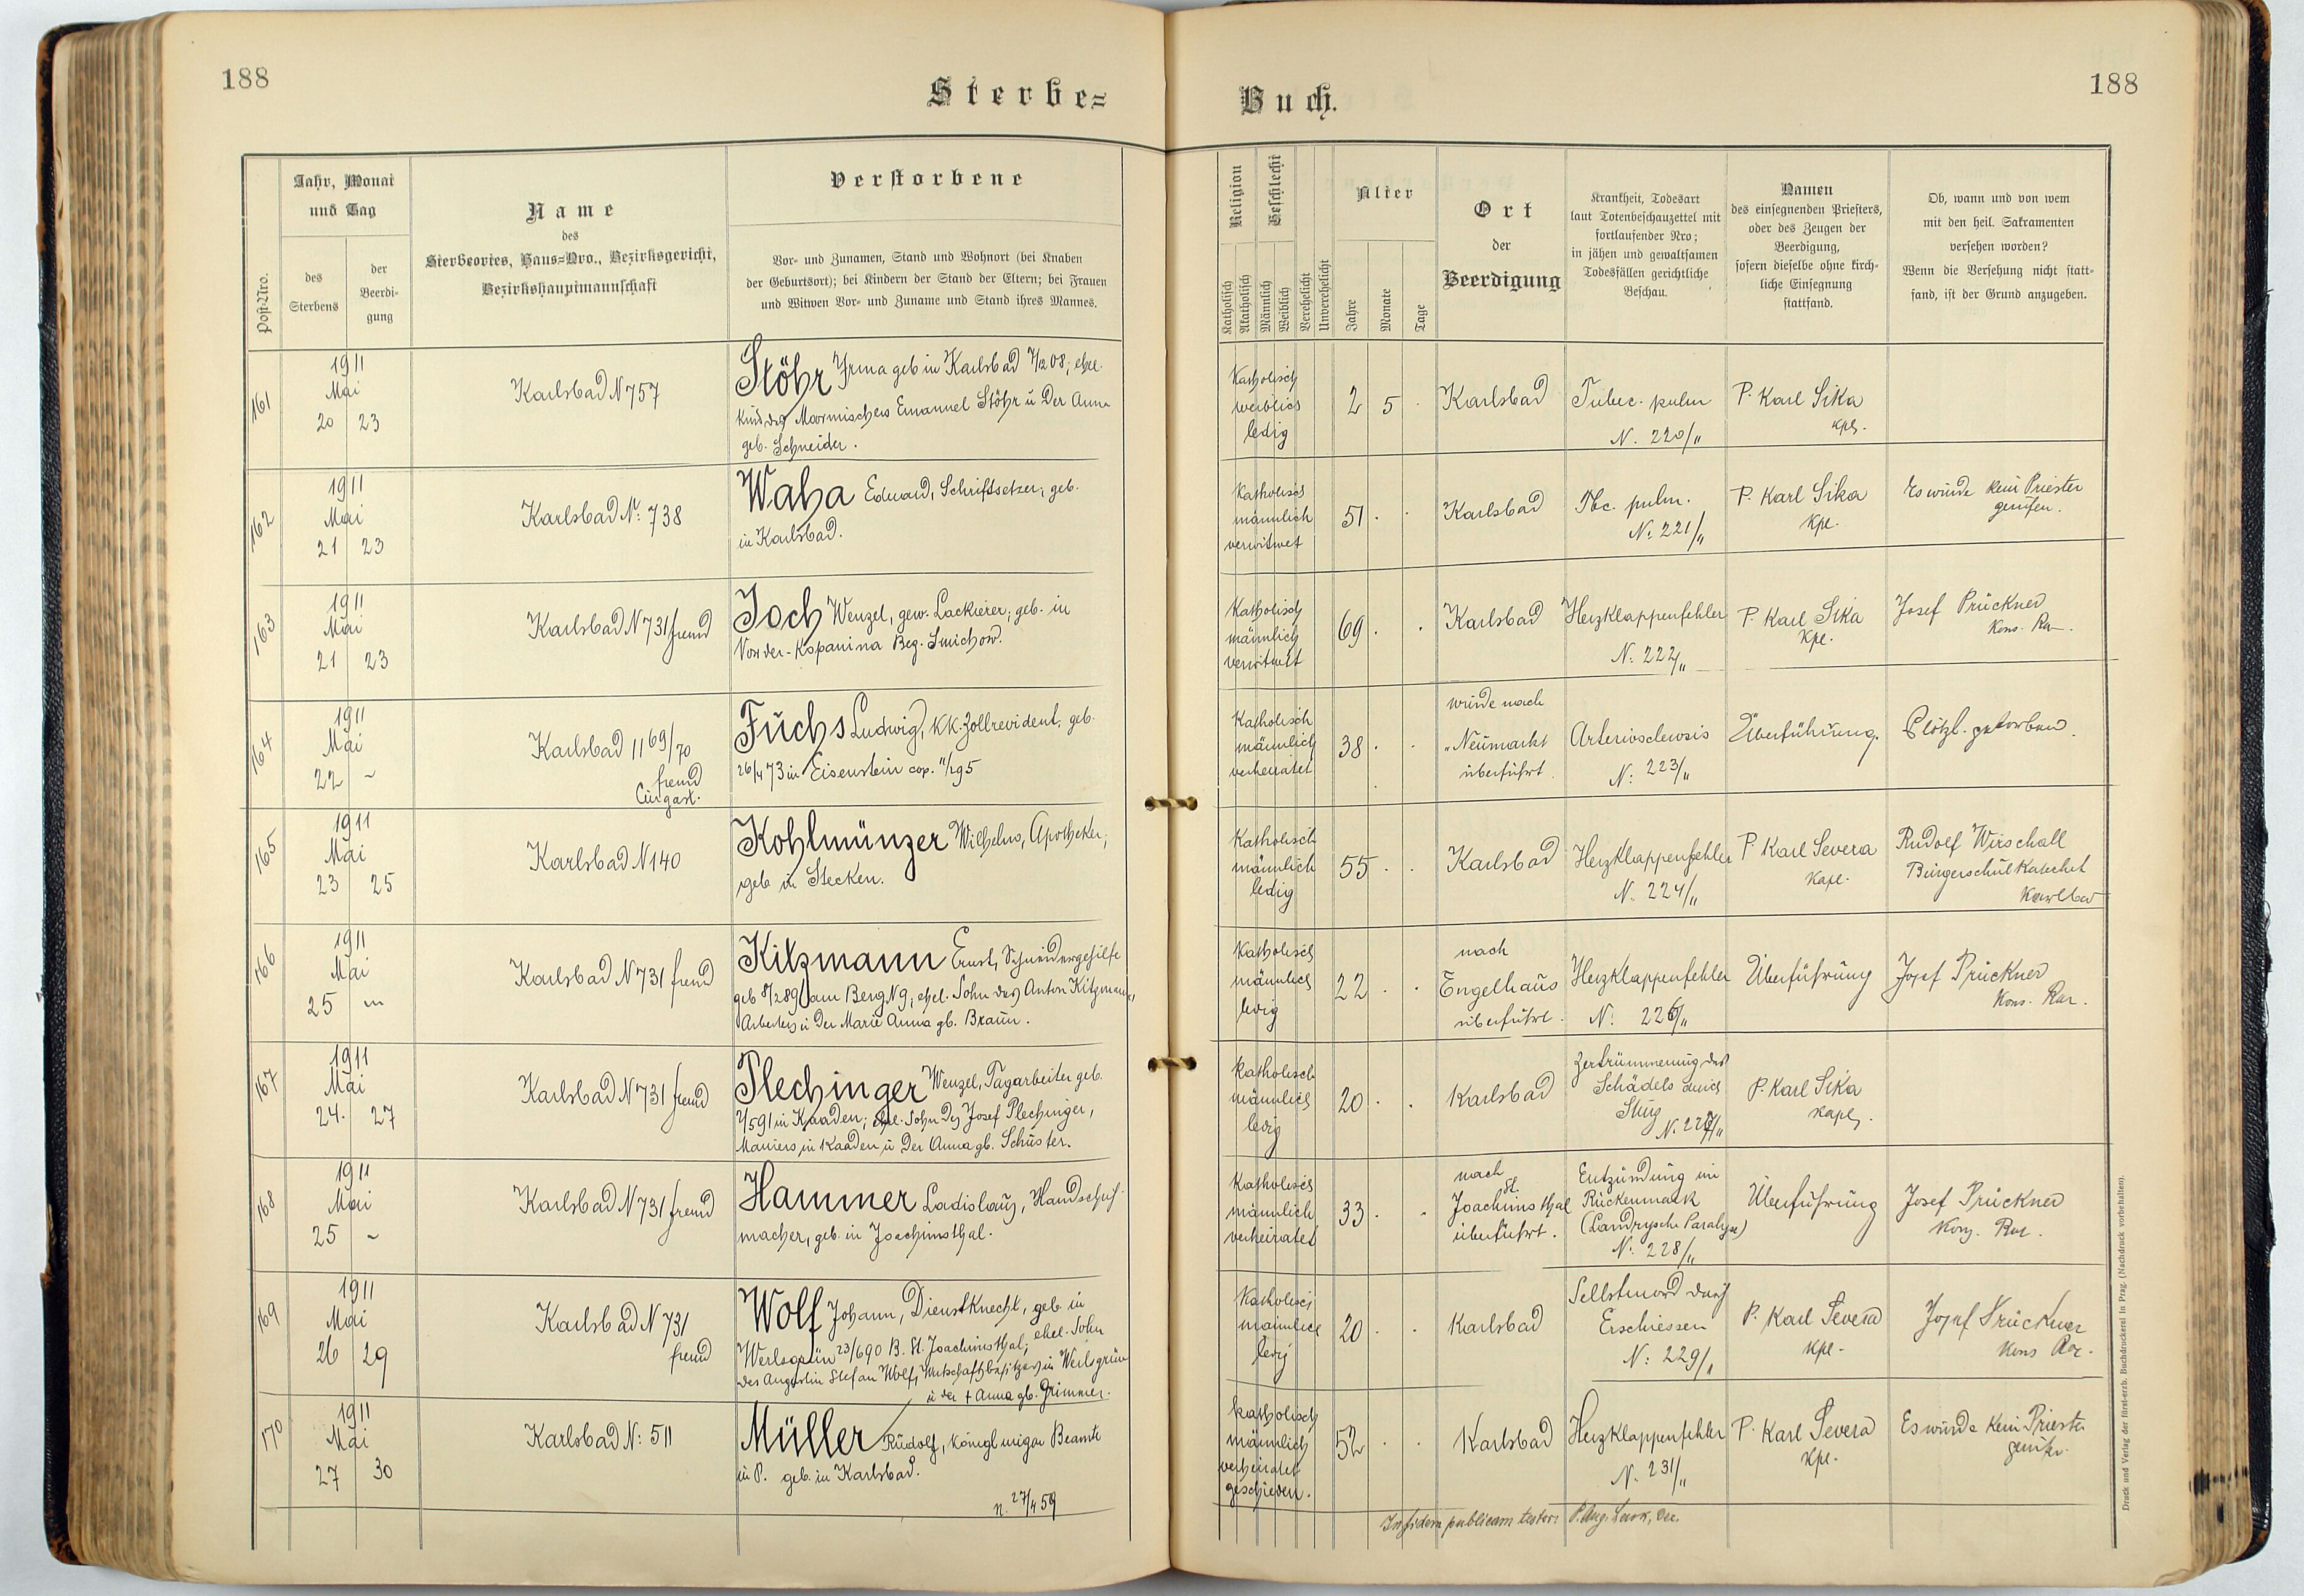 188
Sterbe=
Jahr, Monat
und Tag
des
Sterbens
der
Beerdi-
gung
Post-Nro.
Name
des
Sterbeortes, Haus=Nro., Bezirksgericht,
Bezirkshauptmannschaft
Verstorbene
Vor- und Zunamen, Stand und Wohnort (bei Knaben
der Geburtsort); bei Kindern der Stand der Eltern; bei Frauen
und Witwen Vor- und Zuname und Stand ihres Mannes.
161
1911
Mai
20 23
Karlsbad N 757
Stöhr Irma geb in Karlsbad 7/12 08; ehel.
Kind des Moormischers Emanuel Stöhr u der Anna
geb. Schneider.
162
1911
Mai
21 23
Karlsbad N: 738
Waha Eduard, Schriftsetzer, geb.
in Karlsbad.
163
1911
Mai
21 23
Karlsbad N 731 fremd
Joch Wenzel, gew. Lackierer; geb. in
Vorder-Kopanina Bez. Smichow.
164
1911
Mai
22 -
Karlsbad 1169/70
fremd
Curgast.
Fuchs Ludwig, KK. Zollrevident, geb.
26/4 73 in Eisenstein cop. 11/2 95
165
1911
Mai
23 25
Karlsbad N 140
Kohlmünzer Wilhelm, Apotheker;
geb in Stecken.
166
1911
Mai
25
Karlsbad N 731 fremd
Kitzmann Ernst, Schneidergehilfe
geb 8/2 89 am Berg N 9; ehel. Sohn des Anton Kitzmann,
Arbeiters u der Marie Anna gb. Braun.
167
1911
Mai
24. 27
Karlsbad N 731 fremd
Plechinger Wenzel, Tagarbeiter geb.
1/5 91 in Kaaden; ehel. Sohn des Josef Plechinger,
Maurers in Kaaden u der Anna gb. Schuster.
168
1911
Mai
25 -
Karlsbad N 731 fremd
Hammer Ladislaus, Handschuh-
macher, geb. in Joachimsthal.
169
1911
Mai
26 29
Karlsbad N 731
fremd
Wolf Johann, Dienstknecht, geb. in
Werlsgrün 23/6 90 B. St. Joachimsthal; ehel. Sohn
des Augustin Stefan Wolf, Wirtschaftsbesitzers in Werlsgrün
u der + Anna gb. Grimmer.
170
1911
Mai
27 30
Karlsbad N: 511
Müller Rudolf, Königl ungar Beamte
in P. geb. in Karlsbad.
n. 27/4 59
188
Buch.
Religion
Katholisch
Akatholisch
Geschlecht
Männlich
Weiblich
Verehelicht
Unverehelicht
Alter
Jahre
Monate
Tage
Ort
der
Beerdigung
Krankheit, Todesart
laut Totenbeschauzettel mit
fortlaufender Nro;
in jähen und gewaltsamen
Todesfällen gerichtliche
Beschau.
Namen
des einsegnenden Priesters,
oder des Zeugen der
Beerdigung,
sofern dieselbe ohne kirch-
liche Einsegnung
stattfand.
Ob, wann und von wem
mit den heil. Sakramenten
versehen worden?
Wenn die Versehung nicht statt-
fand, ist der Grund anzugeben.
Katholisch
weiblich
ledig
2 5 .
Karlsbad
Tuberc. pulm
N. 220/11
P. Karl Sika
Kpl.
Katholisch
männlich
verwitwet
51 . .
Karlsbad
Tbc. pulm.
N: 221/11
P. Karl Sika
Kpl.
Es wurde kein Priester
gerufen.
Katholisch
männlich
verwitwet
69 . .
Karlsbad
Herzklappenfehler
N: 222/11
P. Karl Sika
Kpl.
Josef Prückner
Kons. Ra
Katholisch
männlich
verheiratet
38 . .
wurde nach
"Neumarkt
überführt.
Arteriosclerosis
N: 223/11
Überführung.
Plötzl. gestorben.
Katholisch
männlich
ledig
55 . .
Karlsbad
Herzklappenfehler
N. 224/11
P. Karl Severa
Kapl.
Rudolf Wirschall
Bürgerschul Katechet
Karlsbad
Katholisch
männlich
ledig
22 . .
nach
Engelhaus
überführt.
Herzklappenfehler
N: 226/11
Überführung
Josef Prückner
Kons. Rat.
Katholisch
männlich
ledig
20 . .
Karlsbad
Zertrümmerung des
Schädels durch
Sturz
N. 227/11
P. Karl Sika
Kapl.
Katholisch
männlich
verheiratet
33 . .
nach
St.
Joachimsthal
überführt.
Entzündung im
Rückenmark
(Landrysche Paralyse)
N: 228/11
Überführung
Josef Prückner
Kons. Rat.
Katholisch
männlich
ledig
20 . .
Karlsbad
Selbstmord durch
Erschiessen
N: 229/11
P. Karl Severa
Kpl.
Josef Prückner
Kons Rat.
Katholisch
männlich
verheiratet
geschieden.
52 . .
Karlsbad
Herzklappenfehler
N. 231/11
P. Karl Severa
Kpl.
Es wurde kein Priester
gerufen.
In fidem publicam testor: P. Aug.
Druck und Verlag der fürst-erzb. Buchdruckerei in Prag. (Nachdruck vorbehalten).